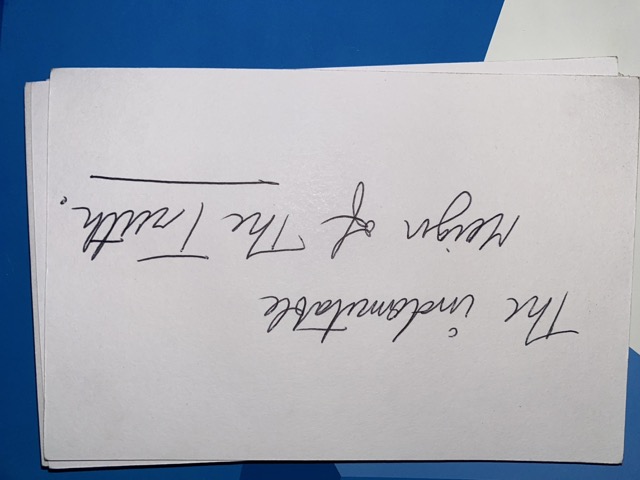 The indomitable
reign of The Truth.